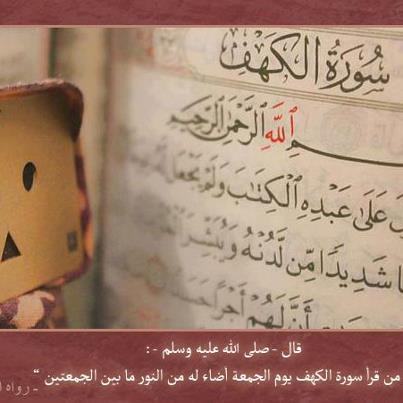 سُورَةُ الكَهْفِ
ـمِ ٱللَّهِ ٱلرَّحْمَٰنِ ٱلرَّحِيمِ
عَلَىٰ عَبْدِهِ ٱلْكِتَٰبَ وَلَمْ يَجْعَل
شَدِيدًا مِّن لَّدُنْهُ وَيُبَشِّرَ
أَنَّ لَهُمْ أَجْرًا حَسَنًا
قال - صلى الله عليه وسلم - :
من قرأ سورة الكهف يوم الجمعة أضاء له من النور ما بين الجمعتين “
ـ رواه